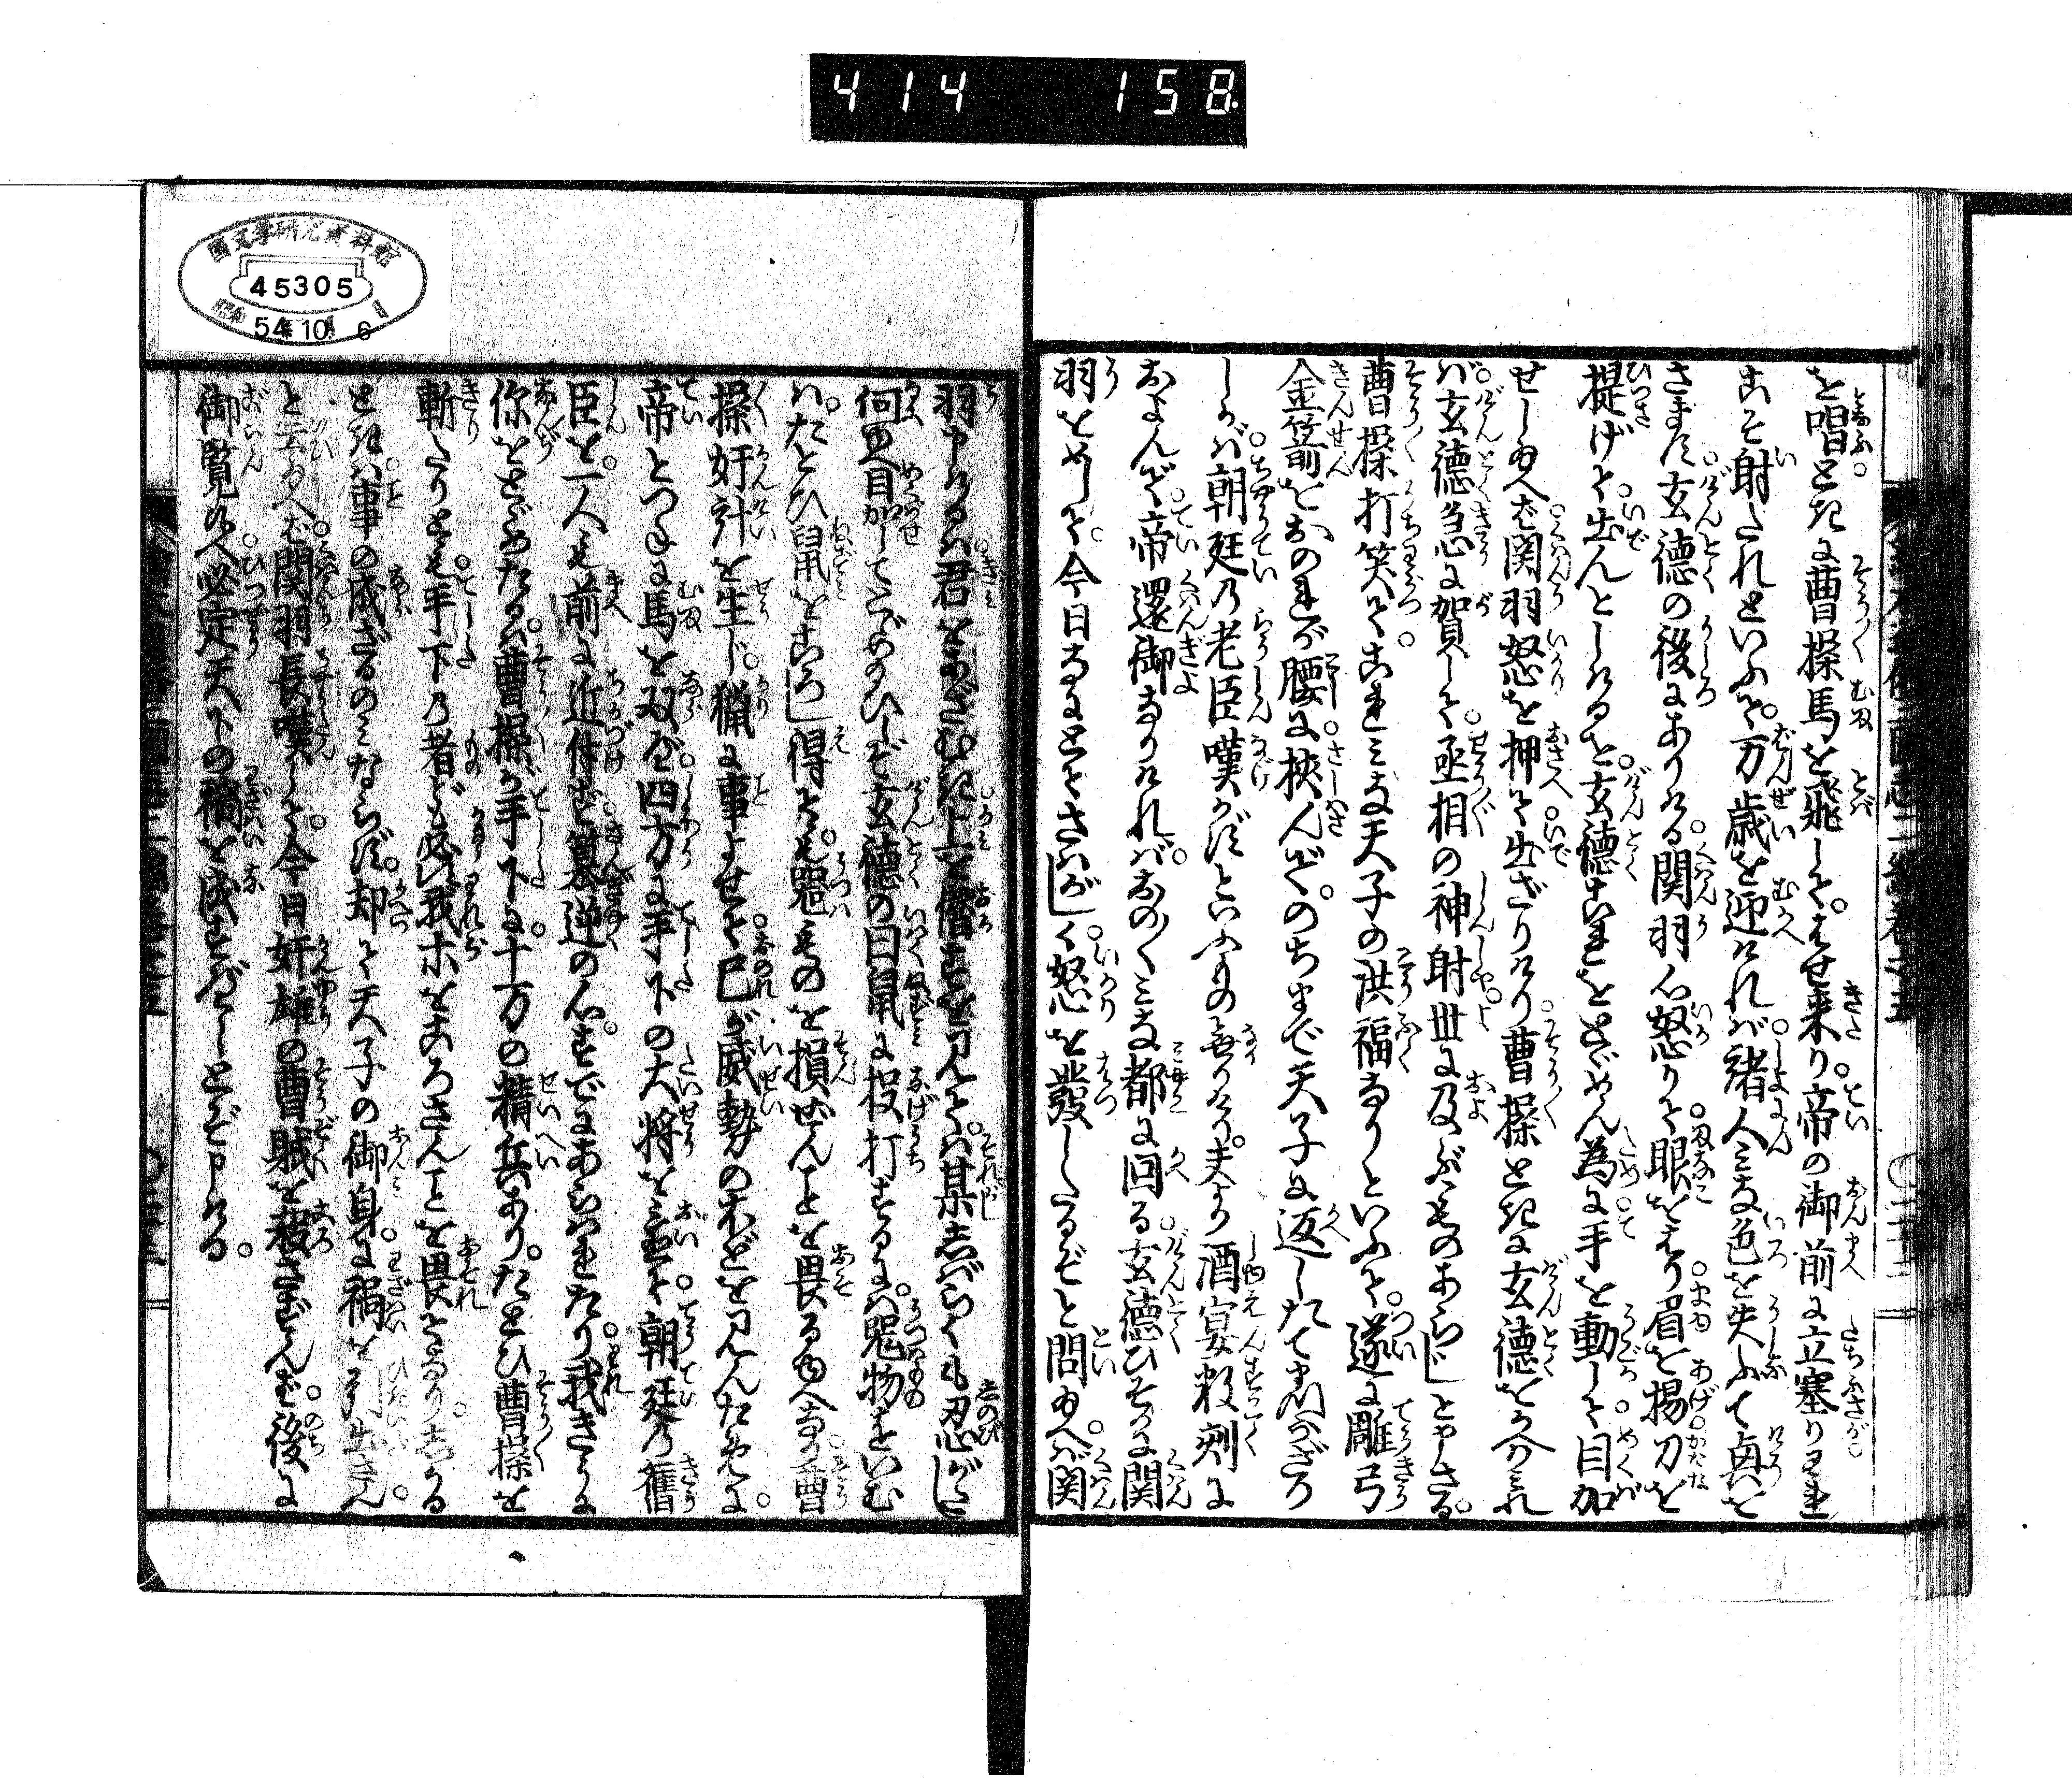 414 158
を唱ふ。ときに曹操馬を飛して。はせ来り。帝の御前に立塞り。われ
こそ射たれといふて。万歳を迎けれバ。諸人みな色を失ふて興を
さます。玄徳の後にありける。関羽心怒りて。眼をはり。眉を揚。刀を
提げて。出んとしけるを。玄徳これをとゞめん為に。手を動して。目加
せしめへば。関羽怒を押へて。出ざりけり。曹操ときに玄徳をかへりみれ
バ。玄徳急に賀して。丞相の神射。世に及ぶものあらじと申さる。
曹操打笑て。これみな天子の洪福なりといふて。遂に雕弓
金箭をおのれが腰に。挾んで。のちまで天子に返したてまつらざり
しかバ。朝廷の老臣嘆かずといふもの無りけり。夫より酒宴数刻に
およんで。帝還御なりけれバ。おの〱みな都に回る。玄徳ひそかに関
羽をめして。今日なにとてさハがしく。怒を発したるぞと問めへバ。関
羽申けるハ。君をあざむき。上を僭するを見てハ。某しバらくも忍びがたし
何ゆへ目加してとゞめめひしぞ。玄徳の曰。鼠に投打するにハ。器物をいむ
ハ。たとひ鼠をころし得とも。器ものを損ぜんことを畏るゆへなり。曹
操奸計を生じ。猟に事よせて。己が威勢のほどを見んために。
帝とつねに馬を双べ。四方に手下の大将をみて。朝廷の舊
臣を。一人も前に近付ず。簒逆の心。すでにあらハれたり。我きうに
你をとゞめたるハ。曹操が手下に。十万の精兵あり。たとひ曹操を
斬たりとも。手下の者ども必我ホをころさんことを畏てなり。しかる
ときハ。事の成ざるのみならず。却て天子の御身に。禍を引出さん。
と云めへば。関羽長嘆して。今日奸雄の曹賊を殺さずんば。後に
御覧候へ。必定天下の禍を成すべしとぞ申ける。
国文学研究資料館
45305
昭和
54年10月6日